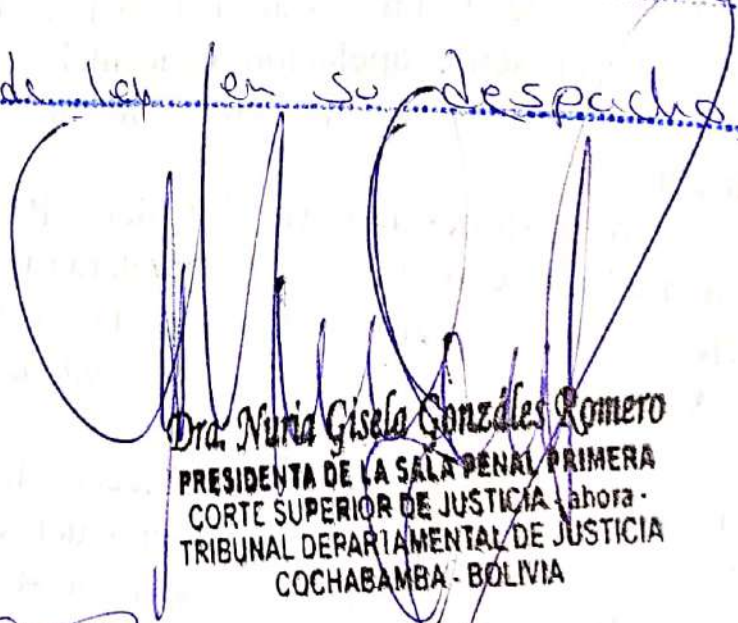 de ley en su despacho
Dra. Nuria Gisela Gonzáles Romero
PRESIDENTA DE LA SALA PENAL PRIMERA
CORTE SUPERIOR DE JUSTICIA - ahora -
TRIBUNAL DEPARTAMENTAL DE JUSTICIA
COCHABAMBA - BOLIVIA